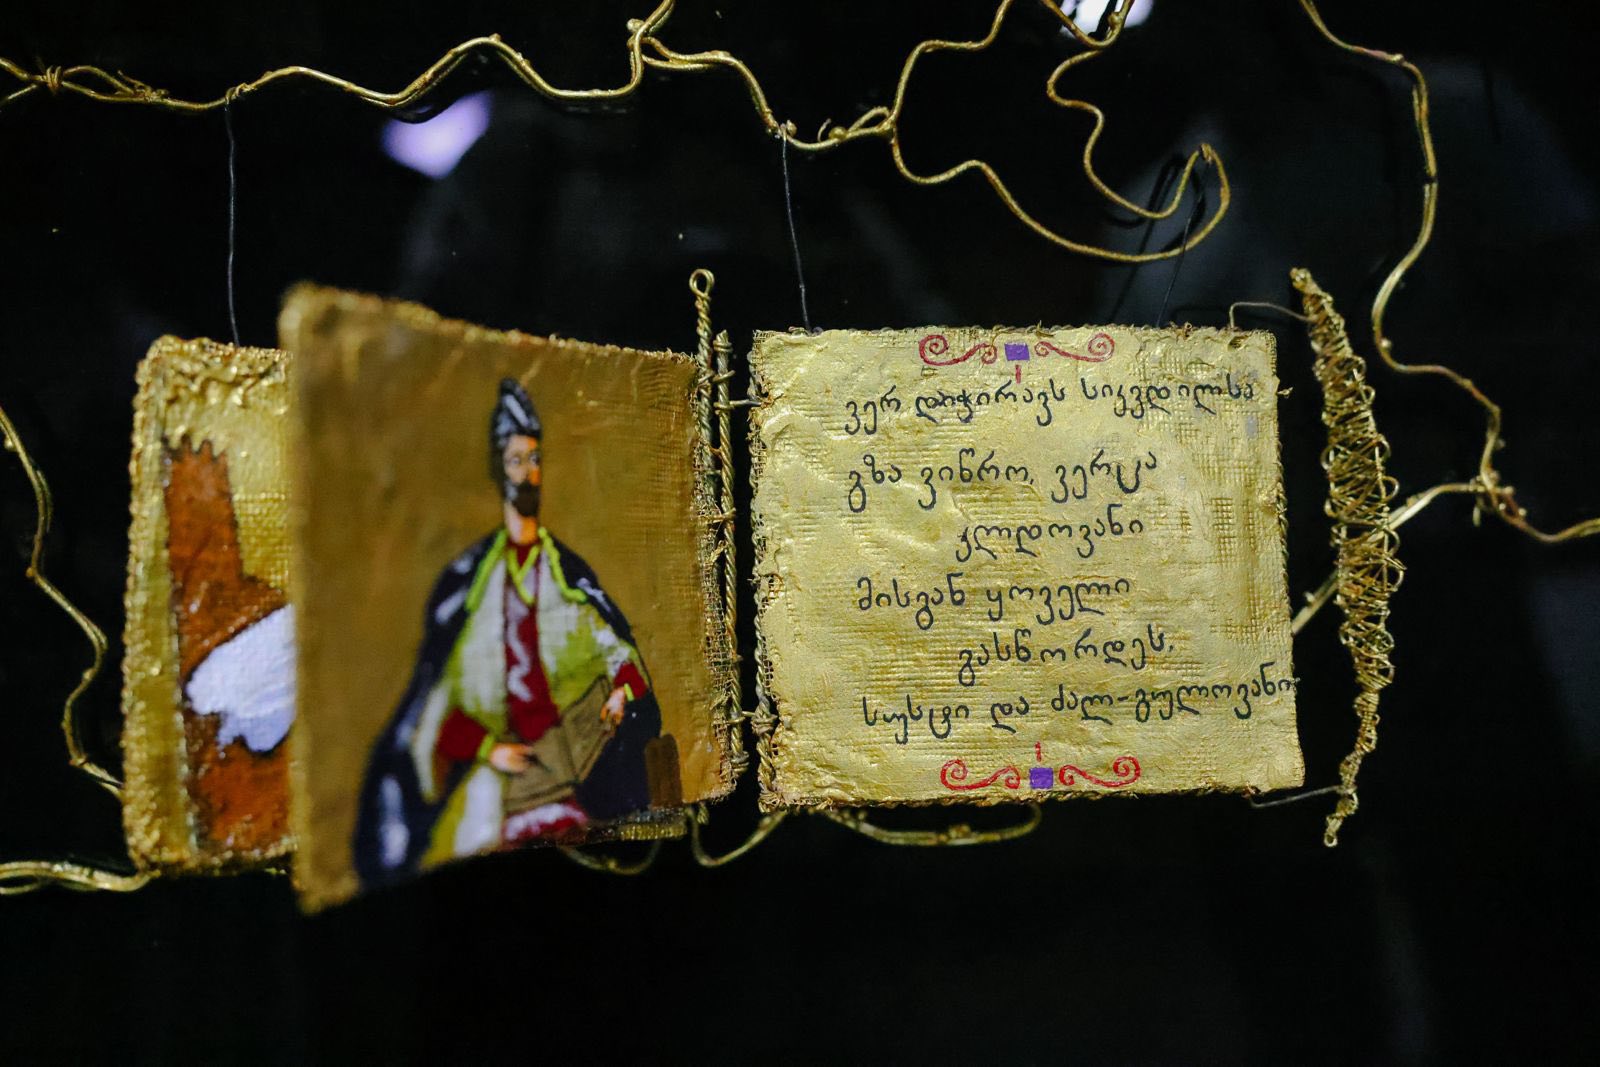 ვერ დაიჭირავს სიკვდილსა
გზა ვიწრო, ვერცა
კლდოვანი
მისგან ყოველი
გასწორდეს,
სუსტი და ძალ-გულოვანი